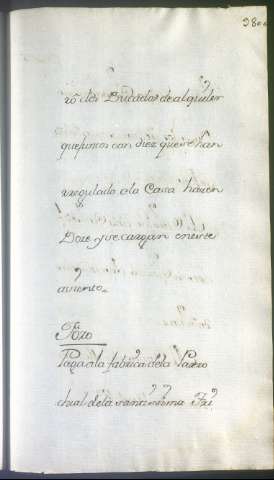 ro dos Ducados de alquiler
que juntos con diez que se han
rregulado a la Casa hazen
Doze, y se cargan en este
asiento.
Foro
Paga a la fabrica de la Parro
chial de la santissima Tri